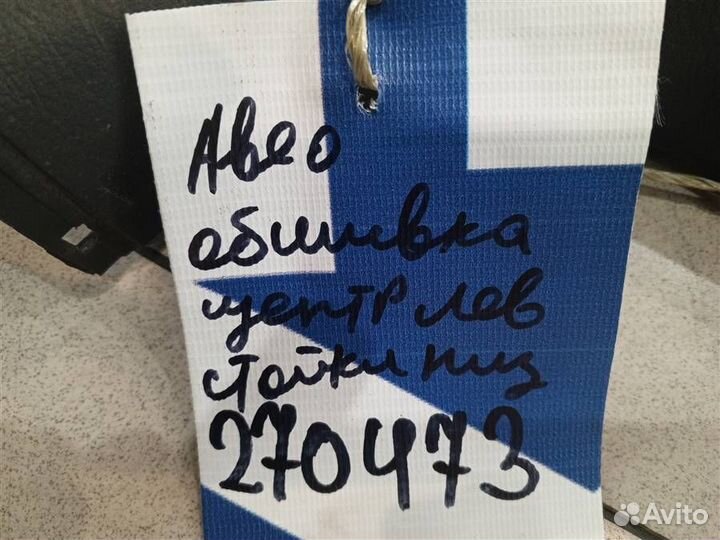 Авео
обшивка
центр лев
стойки низ
270473
Avito